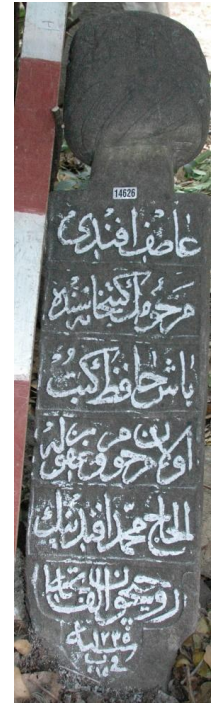 14626
عاطف افندی
مرحومك كتبخانه سنده
باش حافظ كتب
اولان مرحوم و مغفور له
الحاج محمد افندینك
روحیچون الفاتحه
سنه ١٢٣٥